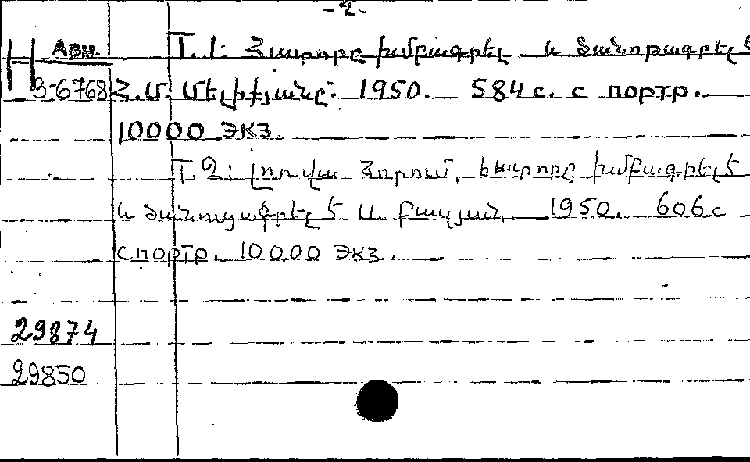 - 2 -
Арм. Т. 1: Հատորը խմբագրել և ծանոթագրել է
3-6768 Հ.Մ. Մելիքյանը: 1950. 584 с. с портр.
10000 экз.
Т. 2: հատորը խմբագրել է
և ծանոթագրել է Ա. 1950. 606 с
с портр. 10000 экз.
29874
29850